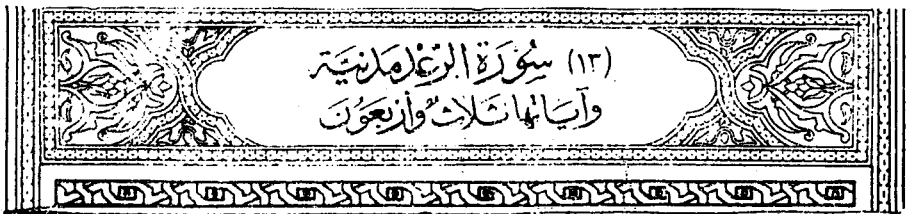 (١٣) سُوْرَة الرَّعْد مَدنِيَّة
وَآيَاتُهَا ثَلَاثٌ وَأَرْبَعُونَ